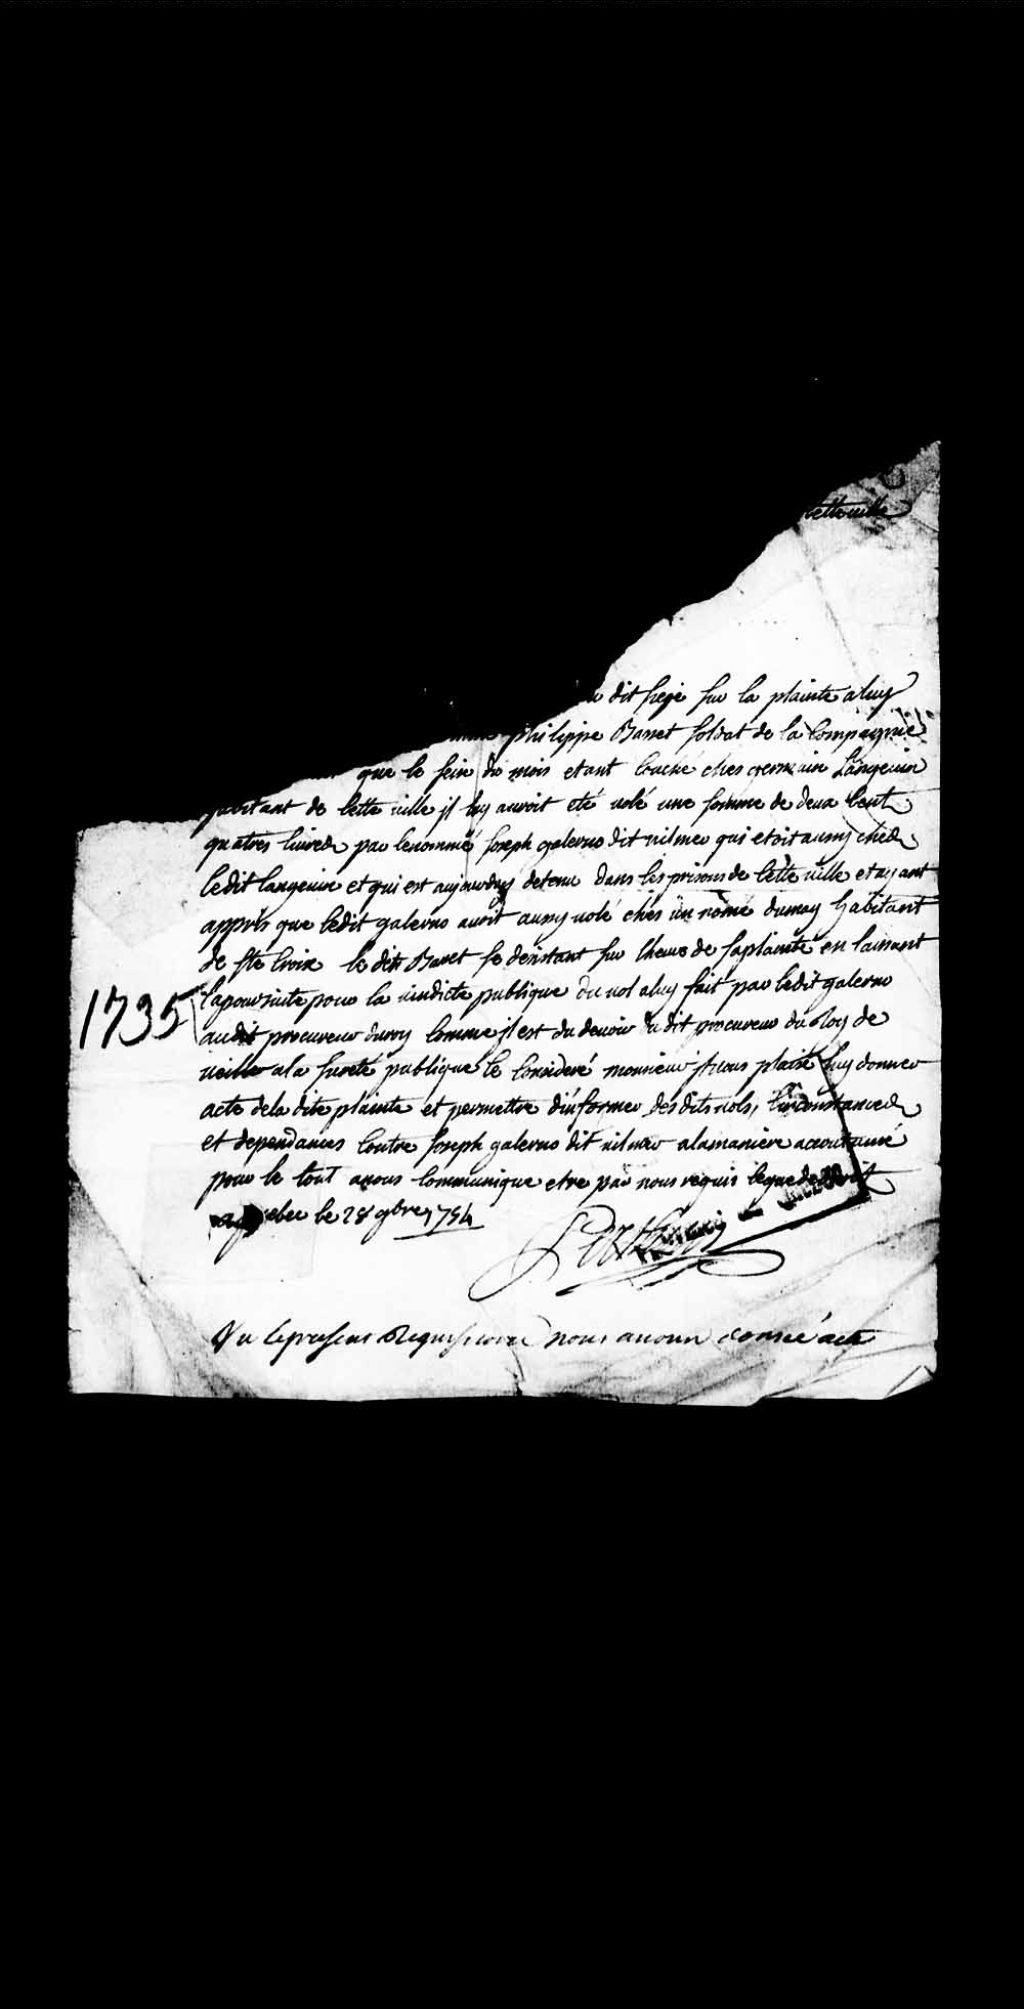 cette ville
dit siege sur la plainte a luy
philippe Barret soldat de la Compagnie
que le seize du mois etant couché ches germain Langevin
habitant de cette ville il luy auroit eté volé une somme de deux Cent
quatres livres par le nommé Joseph galerno dit vilmer qui etoit aussy ches
le dit langevin et qui est aujourduy detenu dans les prisons de cette ville et ayant
appris que ledit galerno avoit aussy volé ches un nomé dumay habitant
de Ste Croix le dit Barret se desistant sur lheure de sa plainte en laissant
la poursuitte pour la vindicte publique du vol a luy fait par ledit galerno
audit procureur du roy Comme il est du devoir du dit procureur du Roy de
veiller a la sureté publique Ce Consideré monsieur il vous plaise luy donner
acte de la dite plainte et permettre d'informer des dits vols, Circonstances
et dependances Contre Joseph galerno dit vilmer a la maniere accoutumé
pour le tout a nous Communiqué etre par nous requis ce que de droit
1735
a quebec le 28 9bre 1734
Vu le present Requisitoire nous avons donné acte